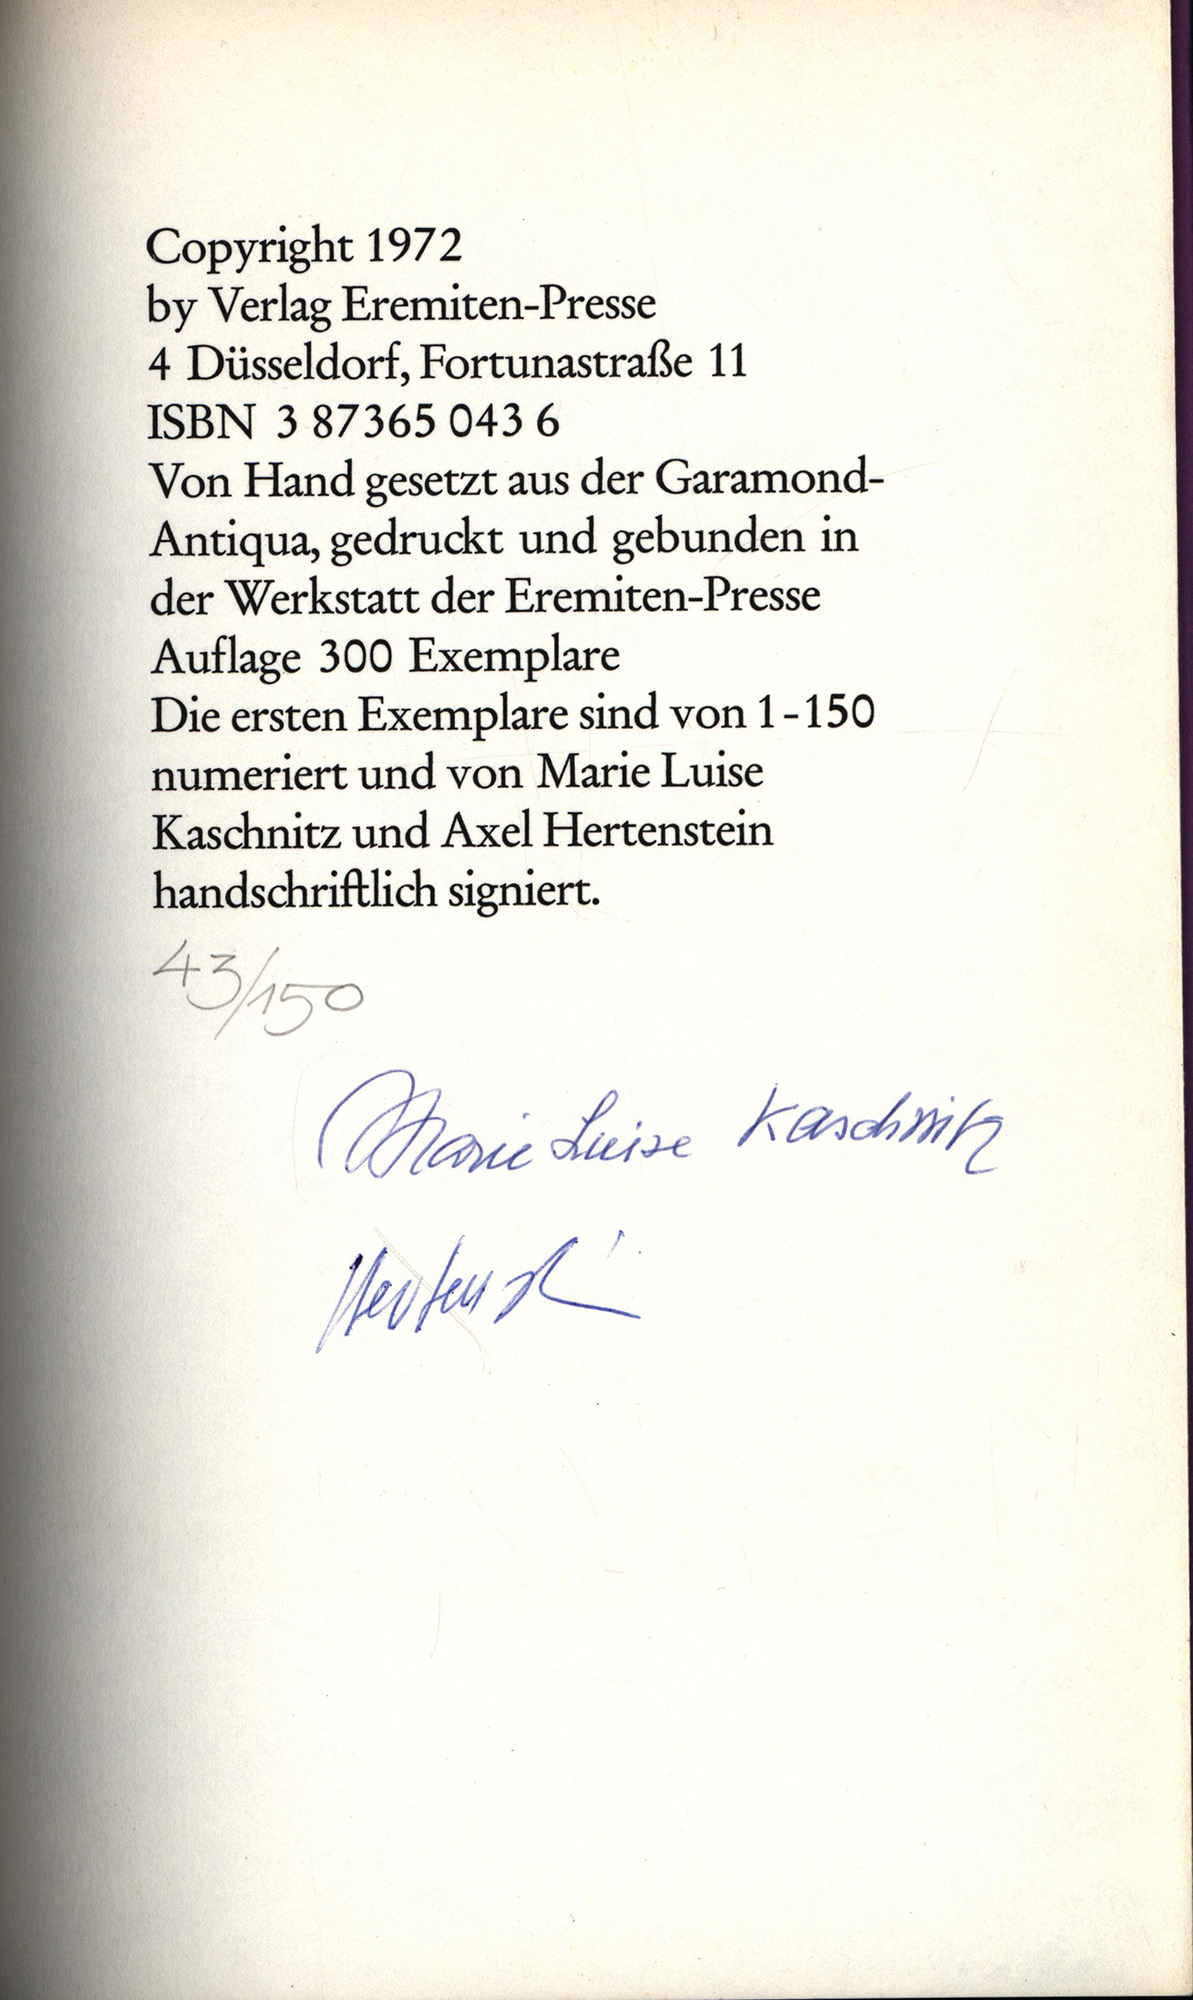 Copyright 1972
by Verlag Eremiten-Presse
4 Düsseldorf, Fortunastraße 11
ISBN 3 87365 043 6
Von Hand gesetzt aus der Garamond-
Antiqua, gedruckt und gebunden in
der Werkstatt der Eremiten-Presse
Auflage 300 Exemplare
Die ersten Exemplare sind von 1-150
numeriert und von Marie Luise
Kaschnitz und Axel Hertenstein
handschriftlich signiert.
43/150
Marie Luise Kaschnitz